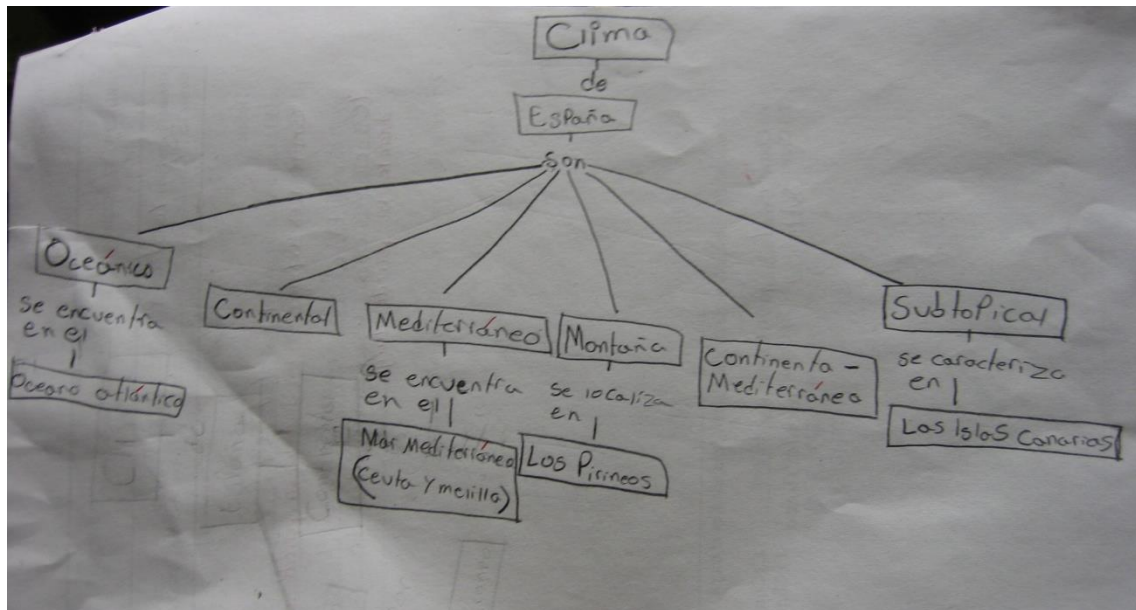 Clima
de
España
son
Oceánico
se encuentra
en el
Oceano atlántico
Continental
Mediterráneo
se encuentra
en el
Mar Mediterráneo
(ceuta y melilla)
Montaña
se localiza
en
Los Pirineos
Continenta -
Mediterráneo
Subtopical
se caracteriza
en
Las Islas Canarias